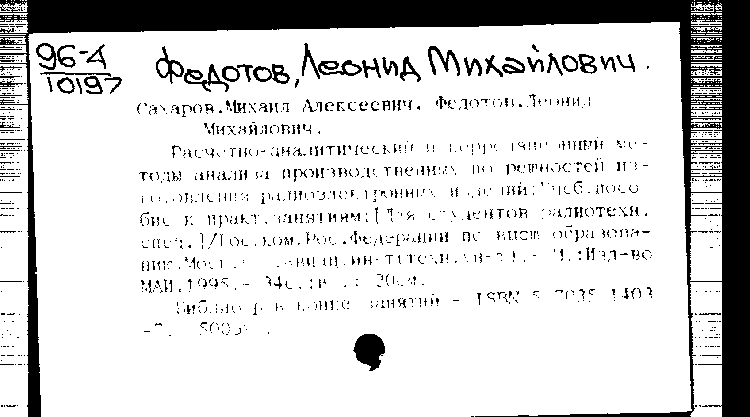 96-4
10197
Федотов, Леонид Михайлович.
Сахаров, Михаил Алексеевич, Федотов, Леонид
Михайлович.
Расчетно-аналитический и корреляционный ме-
тоды анализа производственных погрешностей из-
готовления радиоэлектронных изделий: Учеб. посо-
бие к практ. занятиям: [Для студентов радиотехн.
спец.]/Гос. ком. Рос. Федерации по высш. образова-
нию. Моск. авиац. ин-т - М.: Изд-во
МАИ, 1995. - 34с.: 20см.
Библиогр. в конце занятий - ISBN 5 7035 1403
500